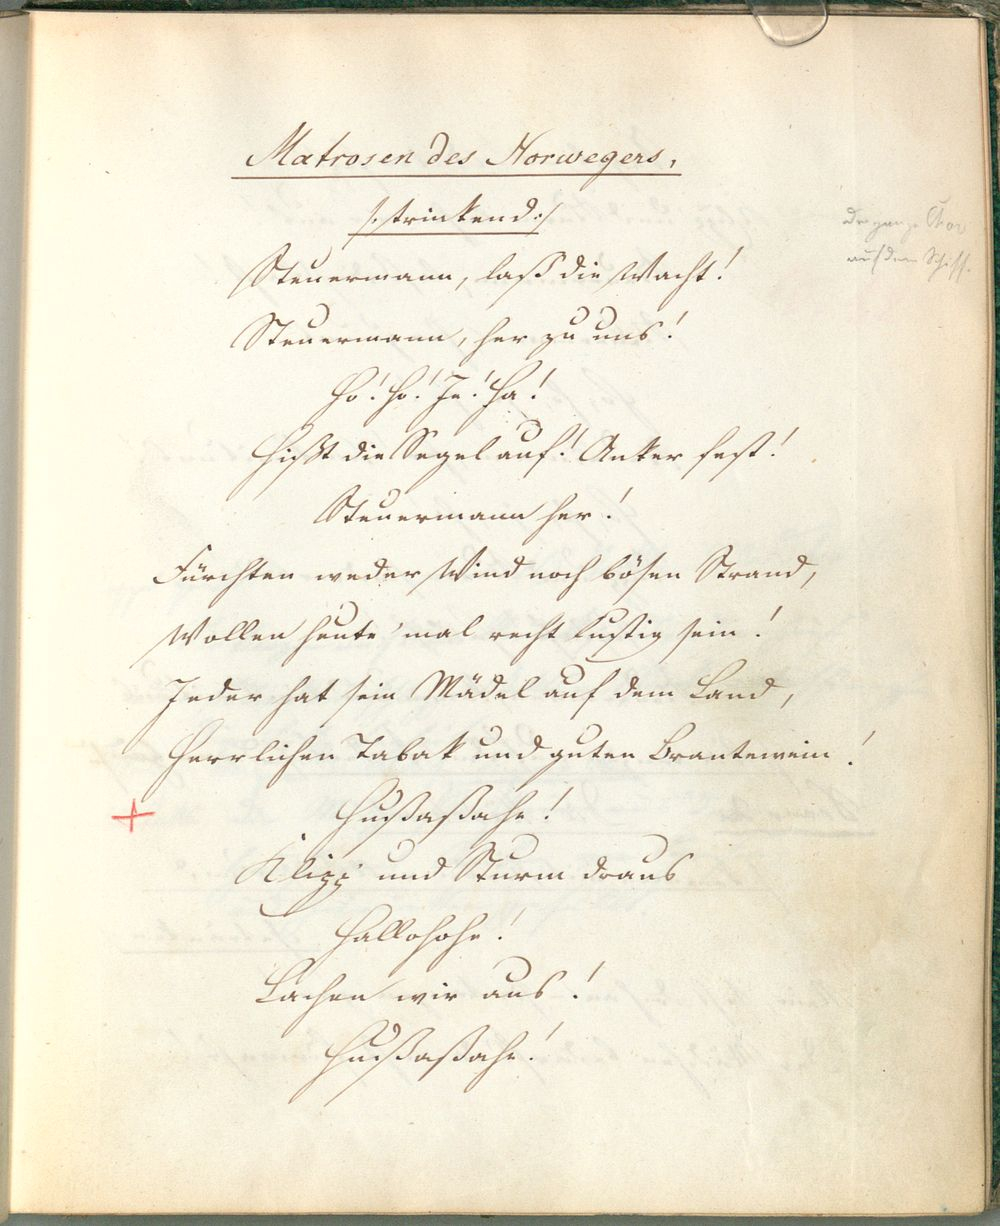 Matrosen des Norwegers,
/: trinkend :/
Steuermann, laß die Wacht!
Steuermann, her zu uns!
Ho! Ho! Je! Ha!
Hißt die Segel auf! Anker fest!
Steuermann her!
Fürchten weder Wind noch bösen Strand,
Wollen heute 'mal recht lustig sein!
Jeder hat sein Mädel auf dem Land,
Herrlichen Tabak und guten Brantewein!
Hußaßahe!
Klipp' und Sturm draus
Hallohohe!
Lachen wir aus!
Hußaßahe!
Der ganze Chor
auf dem Schiff.